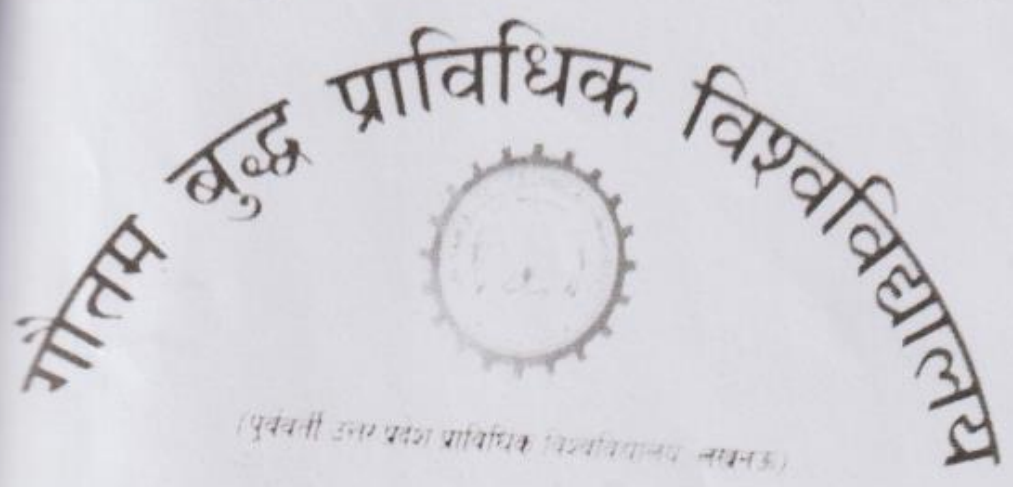 गौतम बुद्ध प्राविधिक विश्वविद्यालय
(पूर्ववर्ती उत्तर प्रदेश प्राविधिक विश्वविद्यालय लखनऊ)